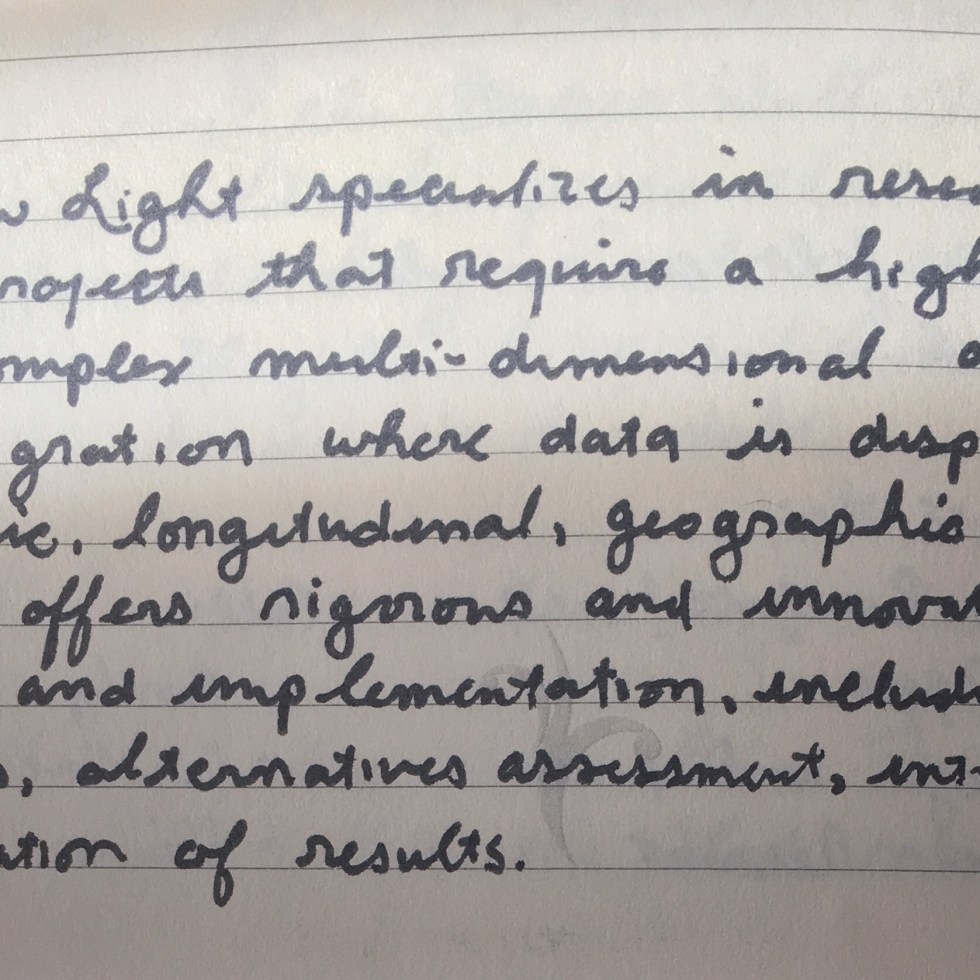 w Light specializes in rese
rojects that require a high
omplex multi-dimensional a
gration where data is disp
ic, longitudinal, geographic
offers rigorous and innovat
and implementation, includ
s, alternatives assessment, int
ation of results.